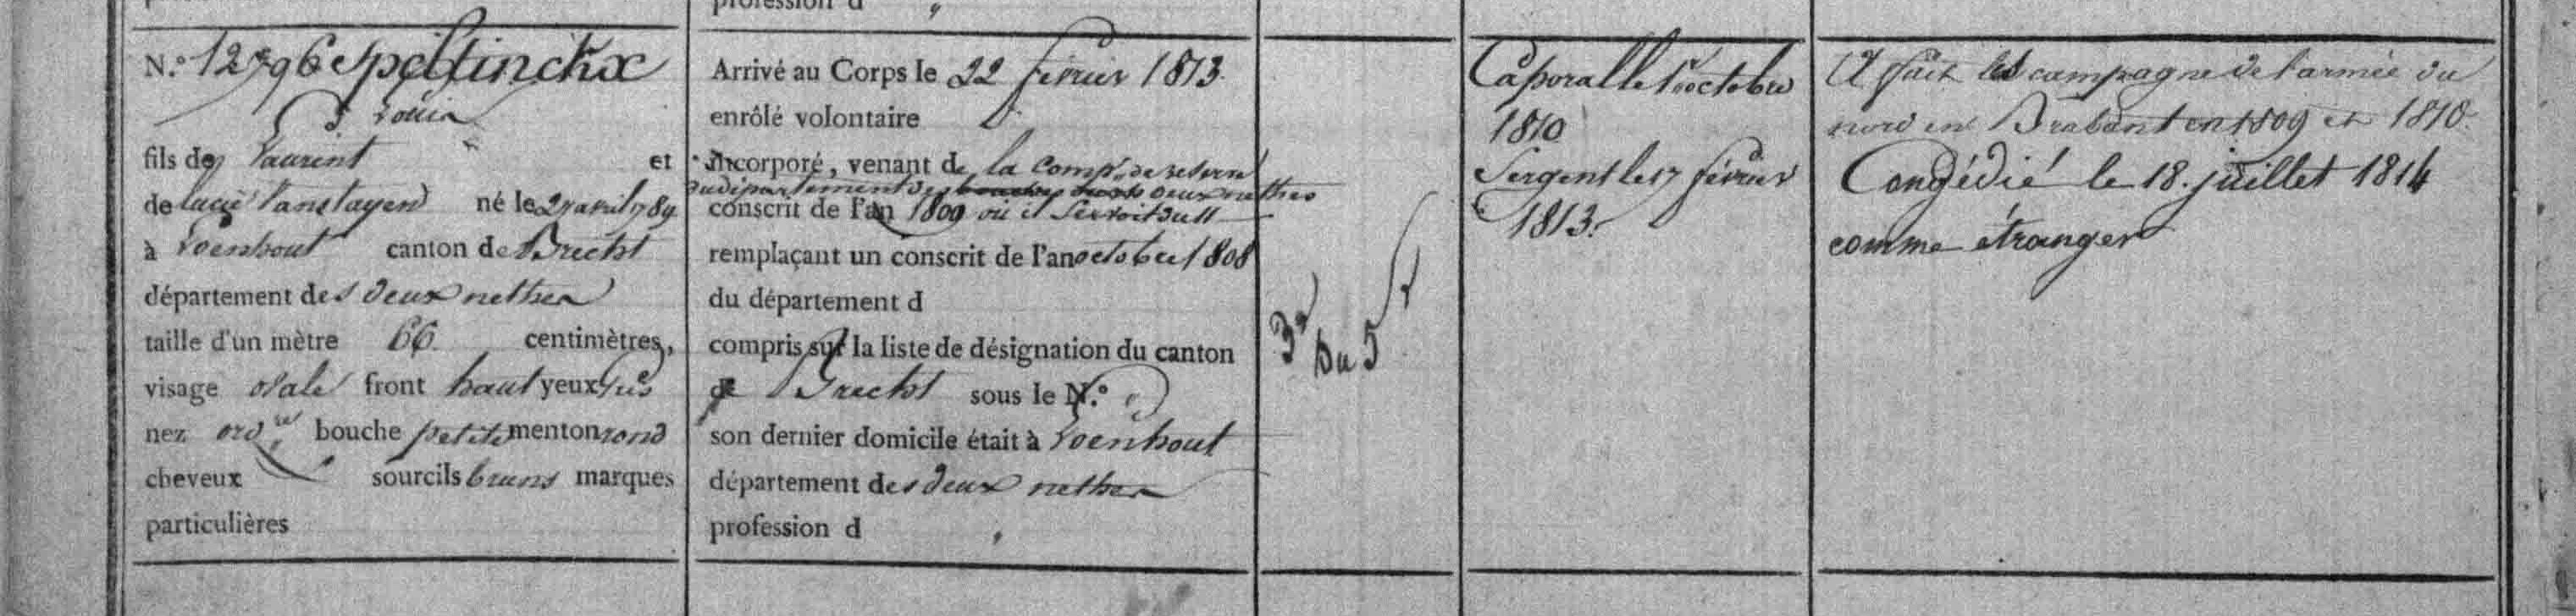 profession d "
N.º 12796 Speltinckx
Louis
fils de Laurent et
de Lucie Vanstayen né le 27 avril 1789
à Loenhout canton de Brecht
département des deux nethes
taille d'un mètre 66 centimètres,
visage ovale front haut yeux gris
nez ord.re bouche petite menton rond
cheveux sourcils bruns marques
particulières
Arrivé au Corps le 22 février 1813.
enrôlé volontaire
incorporé, venant de la comp.ie de reserve
du département des deux nethes
conscrit de l'an 1809 où il servoit du 11
remplaçant un conscrit de l'an octobre 1808
du département d
compris sur la liste de désignation du canton
de Brecht sous le N.º "
son dernier domicile était à Loenhout
département des deux nethes
profession d
3e du 5e
Caporal le 1er octobre
1810
Sergent le 17 février
1813.
A fait les campagne de l'armée du
nord en Brabant en 1809 et 1810.
Congédié le 18. juillet 1814
comme étranger